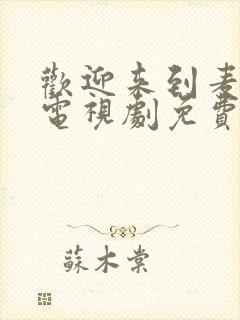 歡迎來到麦
電視劇免費
蘇木棠